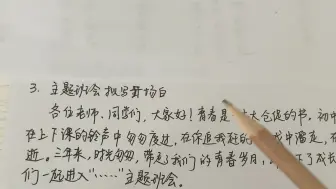 3. 主题班会拟写开场白
各位老师、同学们，大家好！青春是一 太仓促的书。初中
在上下课的铃声中匆匆度过，在你追我赶的 戏中溜走，在
逝。三年来，时光匆匆，带走我们的青春岁月， 下了成长
们一起进入“……”主题班会。